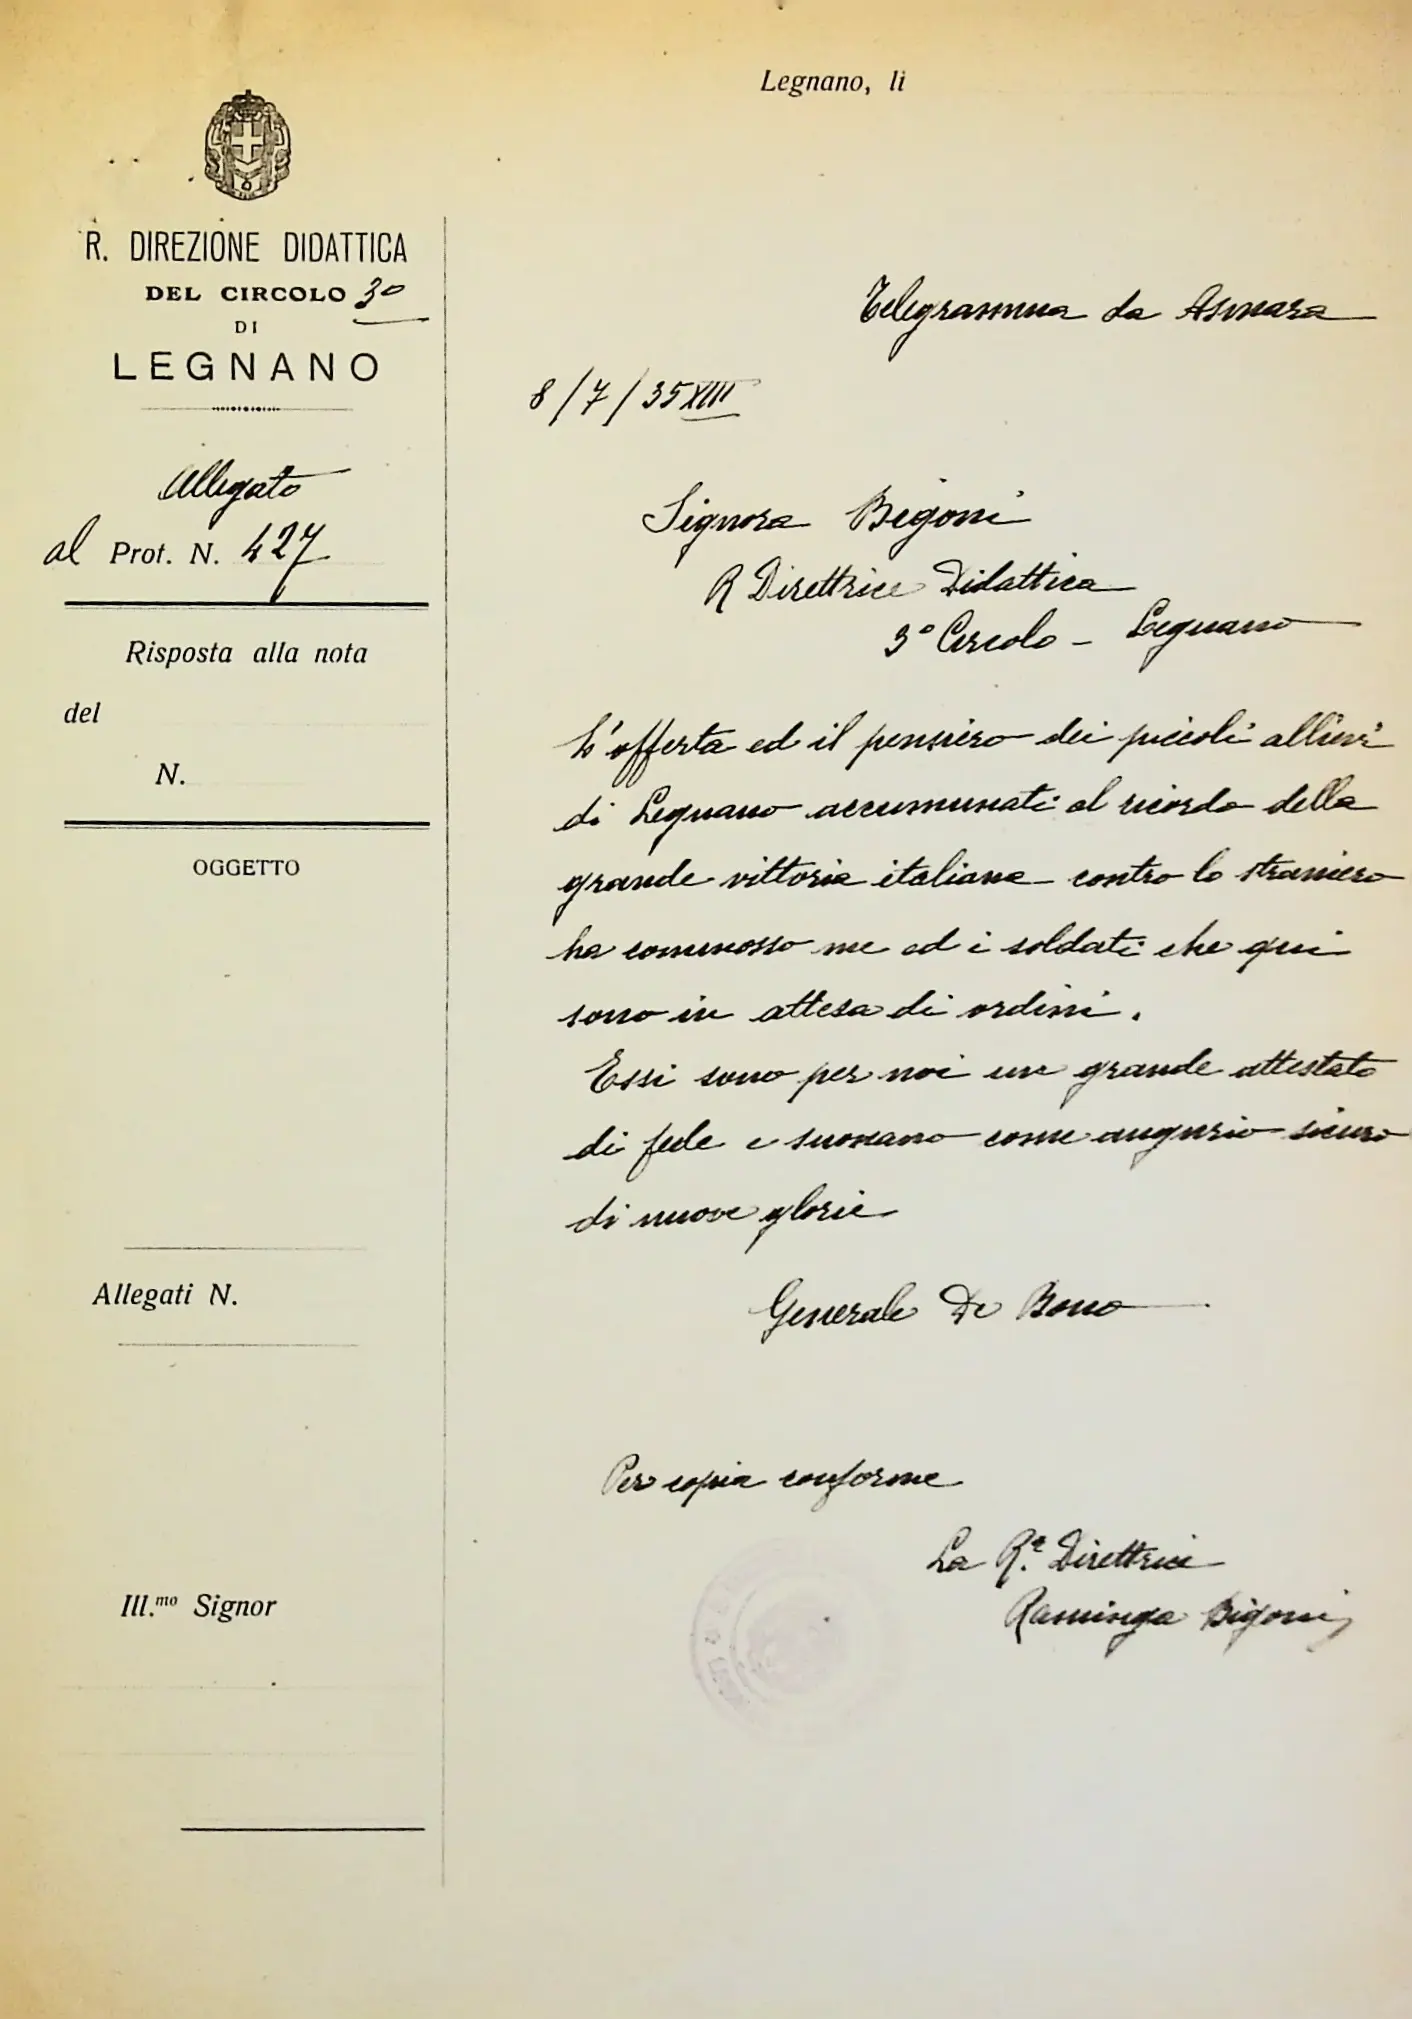 Legnano, li
R. DIREZIONE DIDATTICA
DEL CIRCOLO 3°
DI
LEGNANO
Allegato
al Prot. N. 427
Risposta alla nota
del
N.
OGGETTO
Allegati N.
Ill.mo Signor
Telegramma da Asmara
8/7/35 XIII
Signora Bigoni
R Direttrice Didattica
3° Circolo - Legnano
L'offerta ed il pensiero dei piccoli allievi
di Legnano accumunati al ricordo della
grande vittoria italiana contro lo straniero
ha commosso me ed i soldati che qui
sono in attesa di ordini.
Essi sono per noi un grande attestato
di fede e suonano come augurio sicuro
di nuove glorie
Generale De Bono
Per copia conforme
La R.a Direttrice
Raminga Bigoni